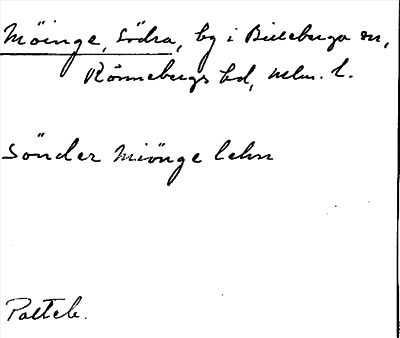 Möinge, Södra, by i Billeberga sn,
Rönnebergs hd, Mlm. l.
Sönder Miönge lehn
Palteb.